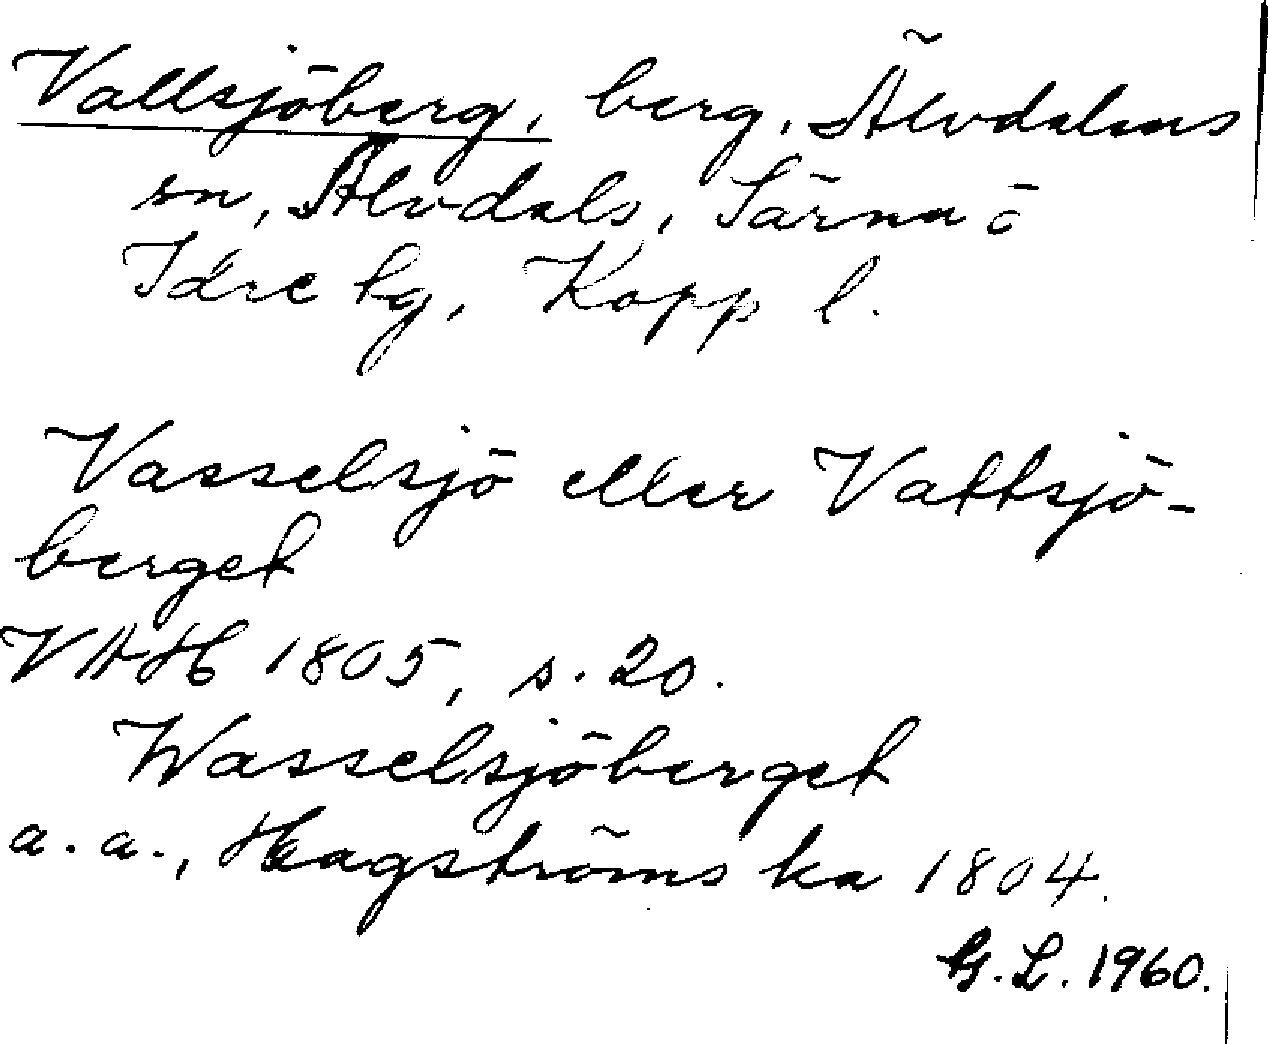 Vallsjöberg, berg, Älvdalens
sn, Älvdals, Särna ō
Idre tg, Kopp l.
Vasselsjö eller Vattsjö-
berget
VAH 1805, s. 20.
Wasselsjöberget
a. a., Hagströms ka 1804.
G. L. 1960.